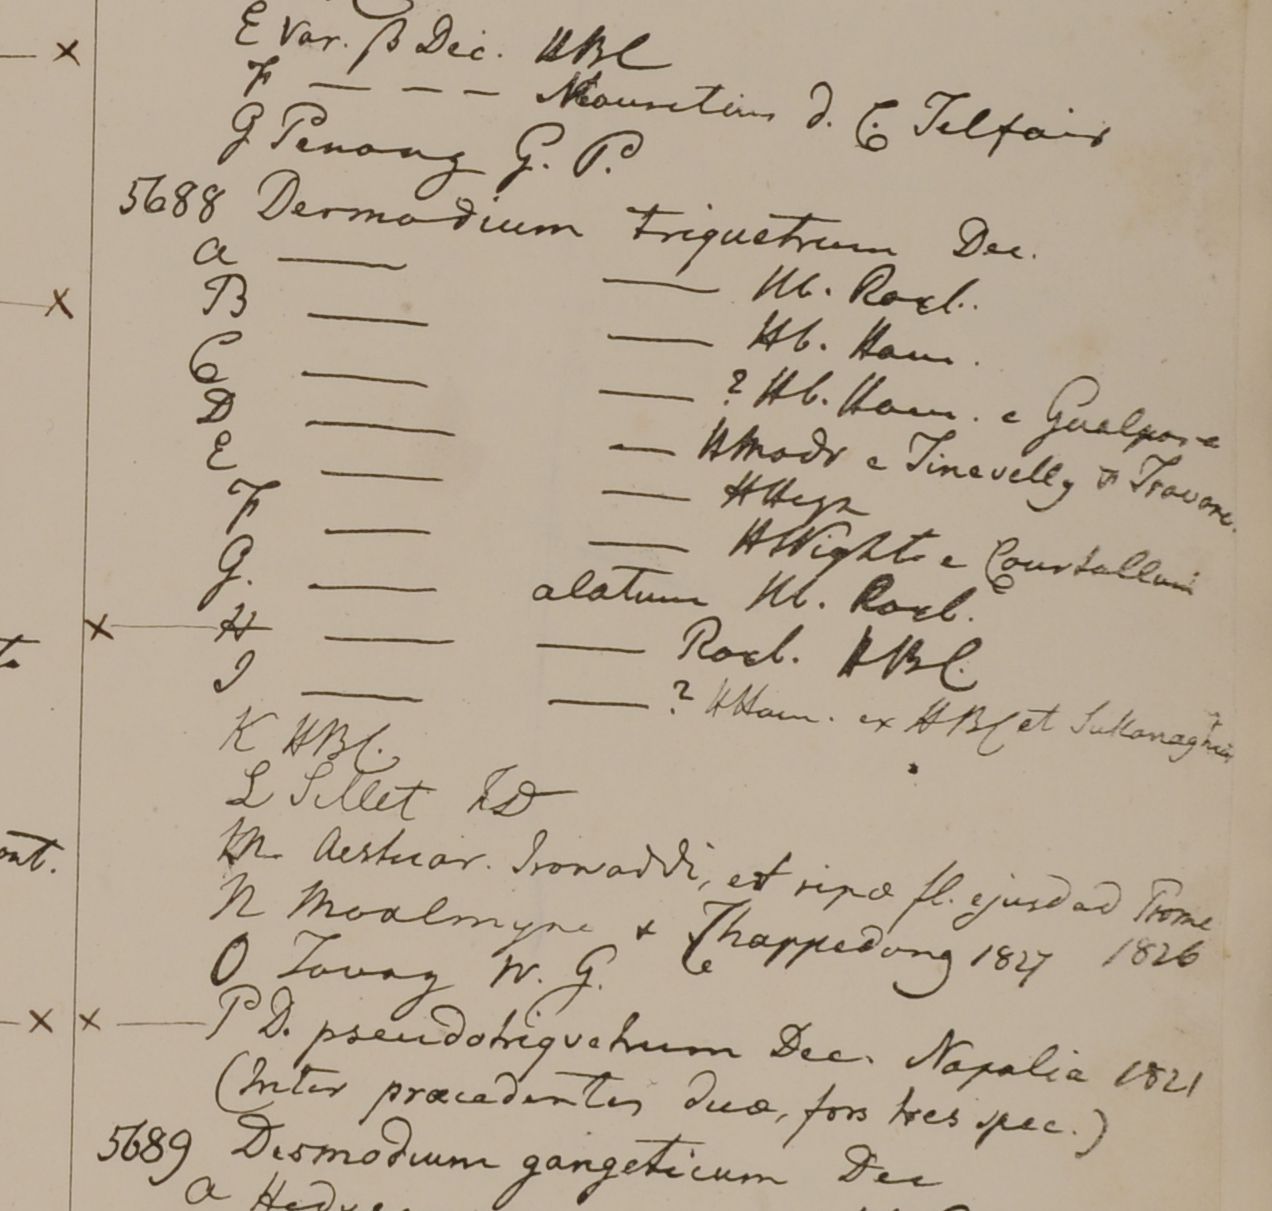 E Var. β Dec. HBC
F — — — Mauritius d. C. Telfair
G Penang G. P.
5688 Desmodium triquetrum Dec.
a — — Hb. Roxb.
B — — Hb. Ham.
C — — ? Hb. Ham. e Gualpara
D — — HMadr e Tinevelly & Travanc.
E — — HHeyn
F — — HWight e Courtallum
G. — alatum Hb. Roxb.
H — — Roxb. HBC.
I — — ? HHam. ex HBC et
K HBC.
L Sillet FD
M. Aestuar. Irawaddi, et ripa fl. ejusd ad Prome 1826
N Moalmyne & Thappedong 1827
O Tavoy W. G.
P D. pseudotriquetrum Dec. Napalia 1821
(Inter præcedentes duæ, fors tres spec.)
5689 Desmodium gangeticum Dec
a
ont.